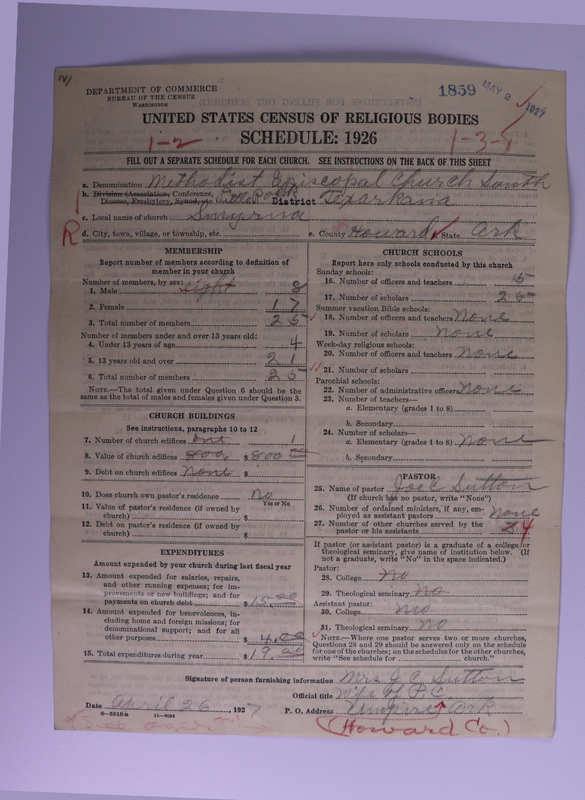 DEPARTMENT OF COMMERCE
BUREAU OF THE CENSUS
WASHINGTON
1859 MAY 2 1927
UNITED STATES CENSUS OF RELIGIOUS BODIES
SCHEDULE: 1926
1-2 1-3-
FILL OUT A SEPARATE SCHEDULE FOR EACH CHURCH. SEE INSTRUCTIONS ON THE BACK OF THIS SHEET
a. Denomination Methodist Episcopal Church South
b. Division (Association, Conference, Little Rock
Diocese, Presbytery, Synod, etc.) District Texarkana
c. Local name of church Smyrna
R d. City, town, village, or township, etc. e. County Howard State Ark
MEMBERSHIP
Report number of members according to definition of
member in your church
Number of members, by sex:
1. Male eight 8
2. Female 17
3. Total number of members 25
Number of members under and over 13 years old:
4. Under 13 years of age 4
5. 13 years old and over 21
6. Total number of members 25
NOTE.—The total given under Question 6 should be
same as the total of males and females given under Question 3.
CHURCH BUILDINGS
See instructions, paragraphs 10 to 12
7. Number of church edifices one 1
8. Value of church edifices 800. $ 800.00
9. Debt on church edifices None $
10. Does church own pastor's residence No
Yes or No
11. Value of pastor's residence (if owned by
church) $
12. Debt on pastor's residence (if owned by
church) $
EXPENDITURES
Amount expended by your church during last fiscal year
13. Amount expended for salaries, repairs,
and other running expenses; for im-
provements or new buildings; and for
payments on church debt $ 15.00
14. Amount expended for benevolences, in-
cluding home and foreign missions; for
denominational support; and for all
other purposes $ 4.00
15. Total expenditures during year $ 19.00
CHURCH SCHOOLS
Report here only schools conducted by this church
Sunday schools:
16. Number of officers and teachers 5
17. Number of scholars 25
Summer vacation Bible schools:
18. Number of officers and teachers None
19. Number of scholars None
Week-day religious schools:
20. Number of officers and teachers None
21. Number of scholars
Parochial schools:
22. Number of administrative officers None
23. Number of teachers—
a. Elementary (grades 1 to 8)
b. Secondary
24. Number of scholars—
a. Elementary (grades 1 to 8) None
b. Secondary
PASTOR
25. Name of pastor Joe C Sutton
(If church has no pastor, write "None")
26. Number of ordained ministers, if any, em-
ployed as assistant pastors None
27. Number of other churches served by the
pastor or his assistants 4
If pastor (or assistant pastor) is a graduate of a college or
theological seminary, give name of institution below. (If
not a graduate, write "No" in the space indicated.)
Pastor:
28. College No
29. Theological seminary No
Assistant pastor:
30. College No
31. Theological seminary No
NOTE.—Where one pastor serves two or more churches,
Questions 28 and 29 should be answered only on the schedule
for one of the churches; on the schedules for the other churches,
write "See schedule for church."
Signature of person furnishing information Mrs J. C. Sutton
Official title Wife of P. C.
Date April 26, 1927 P. O. Address Umpire Ark
8-5518a 11-9054
(Howard Co.)